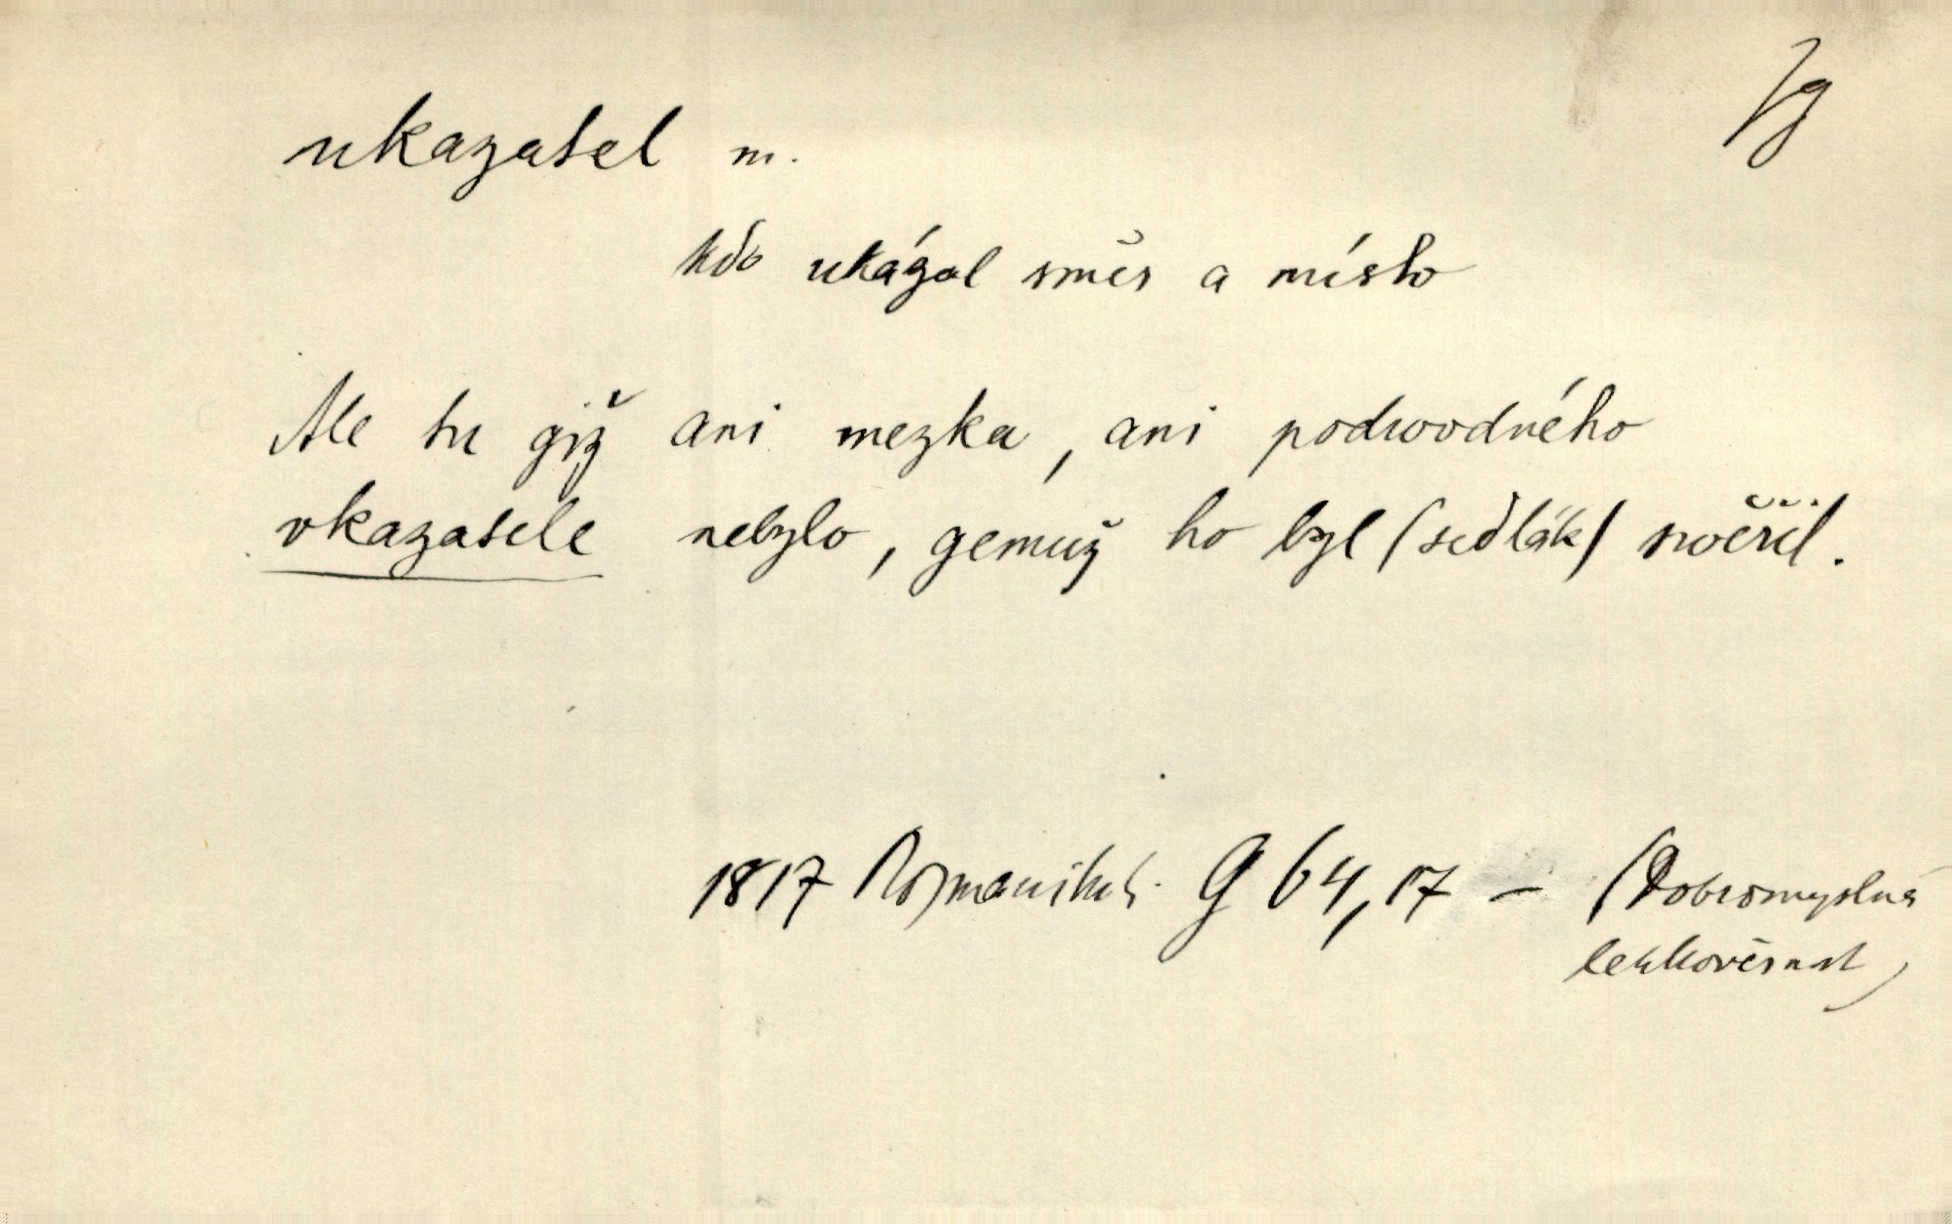 Jg
ukazatel m.
kdo ukázal směr a místo
Ale tu giž ani mezka, ani podwodného
vkazatele nebylo, gemuž ho byl (sedlák) swěřil.
1817 G 64,17 – (Dobromyslná
lehkověrnost)